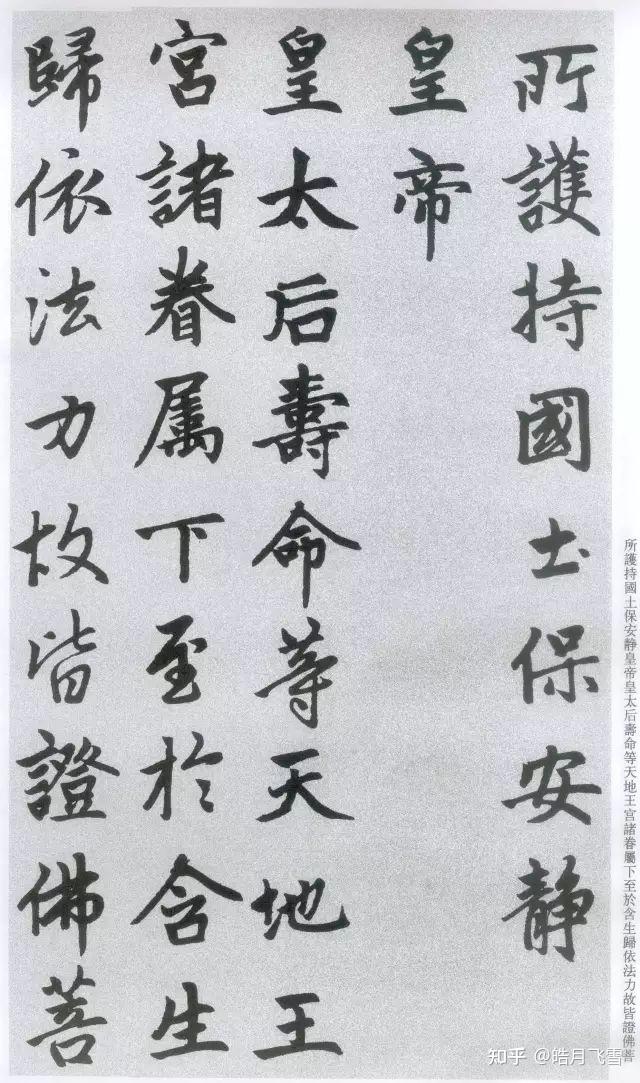 所護持國土保安靜
皇帝
皇太后壽命等天地王
宮諸眷属下至於含生
歸依法力故皆證佛菩
所護持國土保安靜皇帝皇太后壽命等天地王宮諸眷屬下至於含生歸依法力故皆證佛菩
知乎 @皓月飞雪